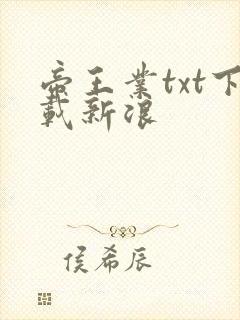 帝王业txt下
载新浪
侯希辰